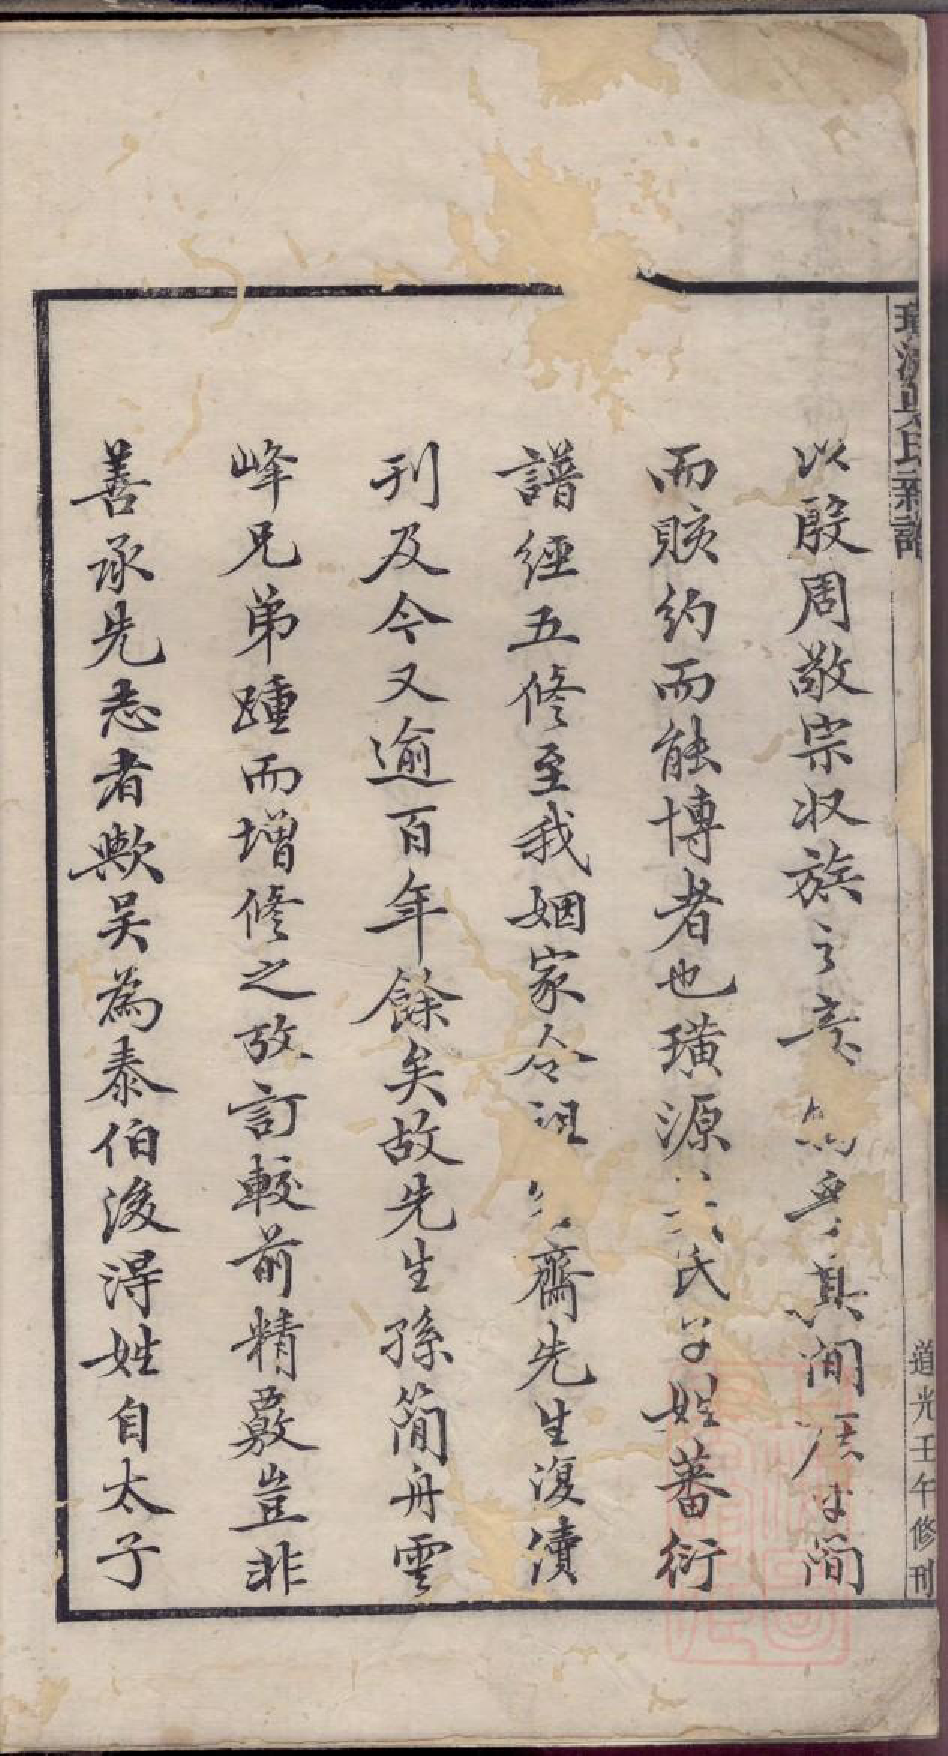 璜源吳氏新譜
道光壬午修刊
以殷周敬宗收族之意 無 其間 簡
而賅約而能博者也璜源 氏子姓蕃衍
譜經五修至我姻家令祖 齋先生復續
刊及今又逾百年餘矣故先生孫簡舟雲
峰兄弟踵而增修之攷訂較前精覈豈非
善承先志者歟吴為泰伯後得姓自太子